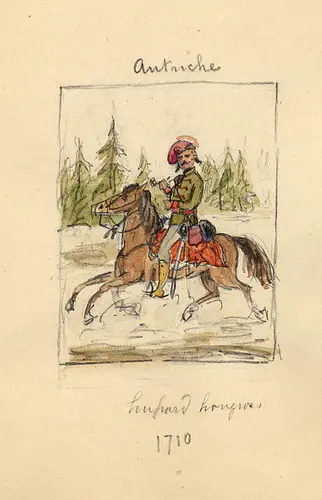 Autriche
hussard hongrois
1710